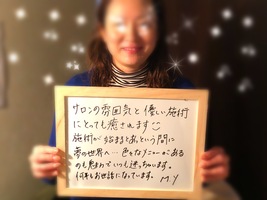 サロンの雰囲気と優しい施術
にとっても癒されます☺
施術が始まるとあっという間に
夢の世界へ… 色々なメニューがある
のも魅力でいつも迷っちゃいます。
何年もお世話になっています。 M.Y